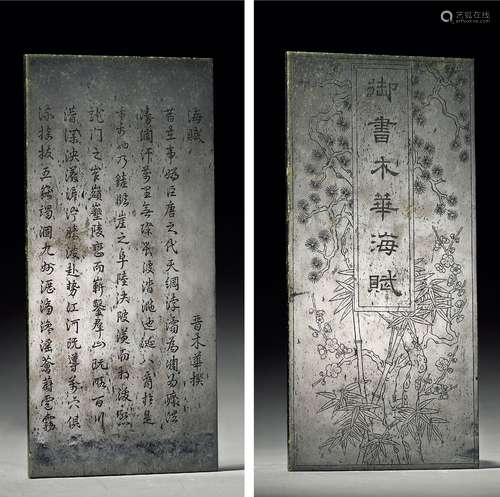 海賦 晉木華撰
昔在帝媯臣唐之代天綱浡潏為凋為瘵洪
濤瀾汗萬里無際長波涾㴵迤涎八裔於是
乎禹也乃鏟臨崖之阜陸決陂潢而相浚啟
龍門之岝嶺墾陵巒而嶄鑿群山既略百川
潛渫泱漭澹泞騰波赴勢江河既導萬穴俱
流掎拔五嶽竭涸九州瀝滴滲淫薈蔚雲霧
御書木華海賦
艺狐在线
artfoxlive.com